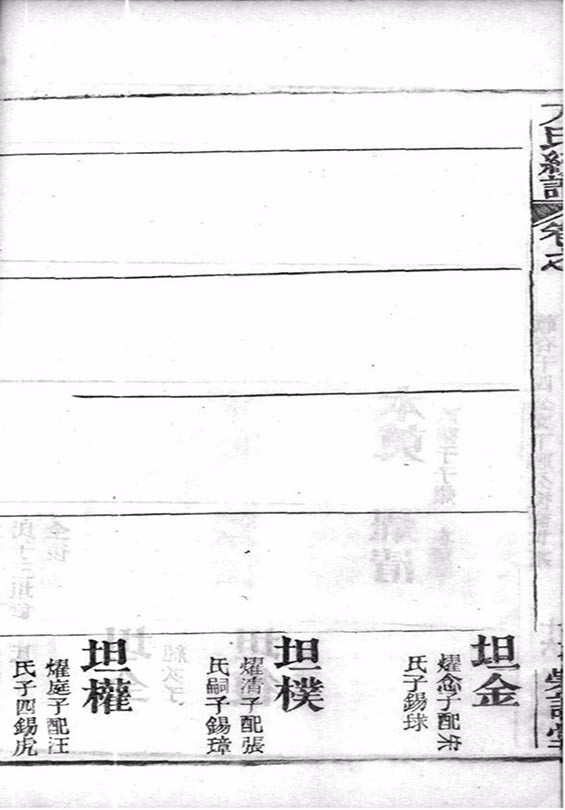 氏
卷之
坦金
燿念子配朱
氏子錫球
坦樸
燿清子配張
氏嗣子錫璋
坦權
燿庭子配汪
氏子四錫虎